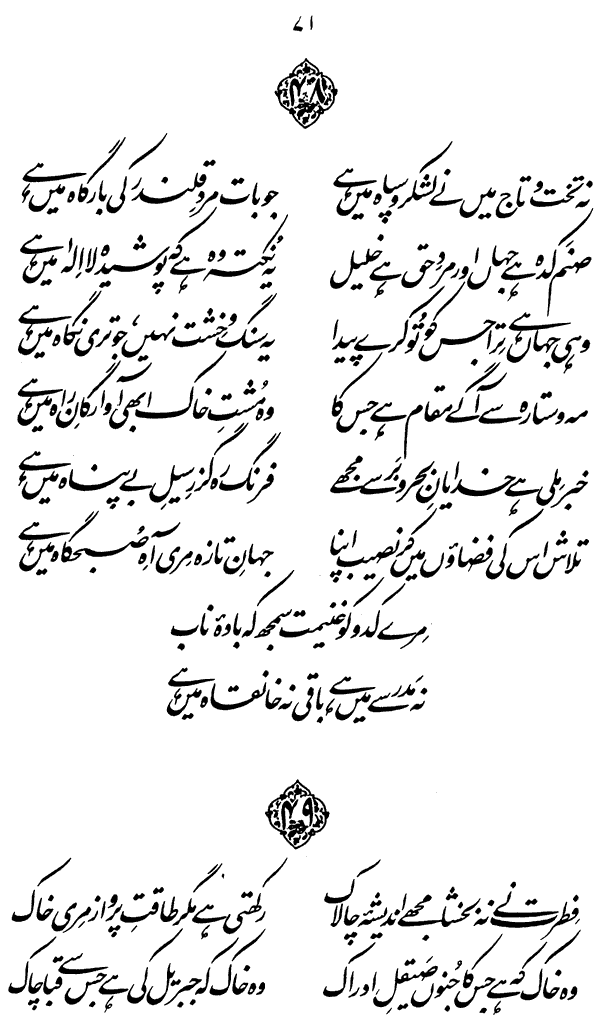 ۷۱
۴۸
نہ تخت و تاج میں نے لشکر و سپاہ میں ہے جو بات مردِ قلندر کی بارگاہ میں ہے
صنم کدہ ہے جہاں اور مردِ حق ہے خلیل یہ نُکتہ وہ ہے کہ پوشیدہ لا الٰہ میں ہے
وہی جہاں ہے تِرا جس کو تُو کرے پیدا یہ سنگ و خشت نہیں، جو تری نگاہ میں ہے
مہ و ستارہ سے آگے مقام ہے جس کا وہ مُشتِ خاک ابھی آوارگانِ راہ میں ہے
خبر مِلی ہے خدایانِ بحر و بَر سے مجھے فرنگ رہ گزرِ سیلِ بے پناہ میں ہے
تلاش اس کی فضاؤں میں کر نصیب اپنا جہانِ تازہ مِری آہِ صُبحگاہ میں ہے
مِرے کدو کو غنیمت سمجھ کہ بادۂ ناب
نہ مَدرسے میں ہے باقی نہ خانقاہ میں ہے
۴۹
فِطرت نے نہ بخشا مجھے اندیشۂ چالاک رکھتی ہے مگر طاقتِ پرواز مِری خاک
وہ خاک کہ ہے جس کا جُنوں صَیقلِ ادراک وہ خاک کہ جبریل کی ہے جس سے قبا چاک